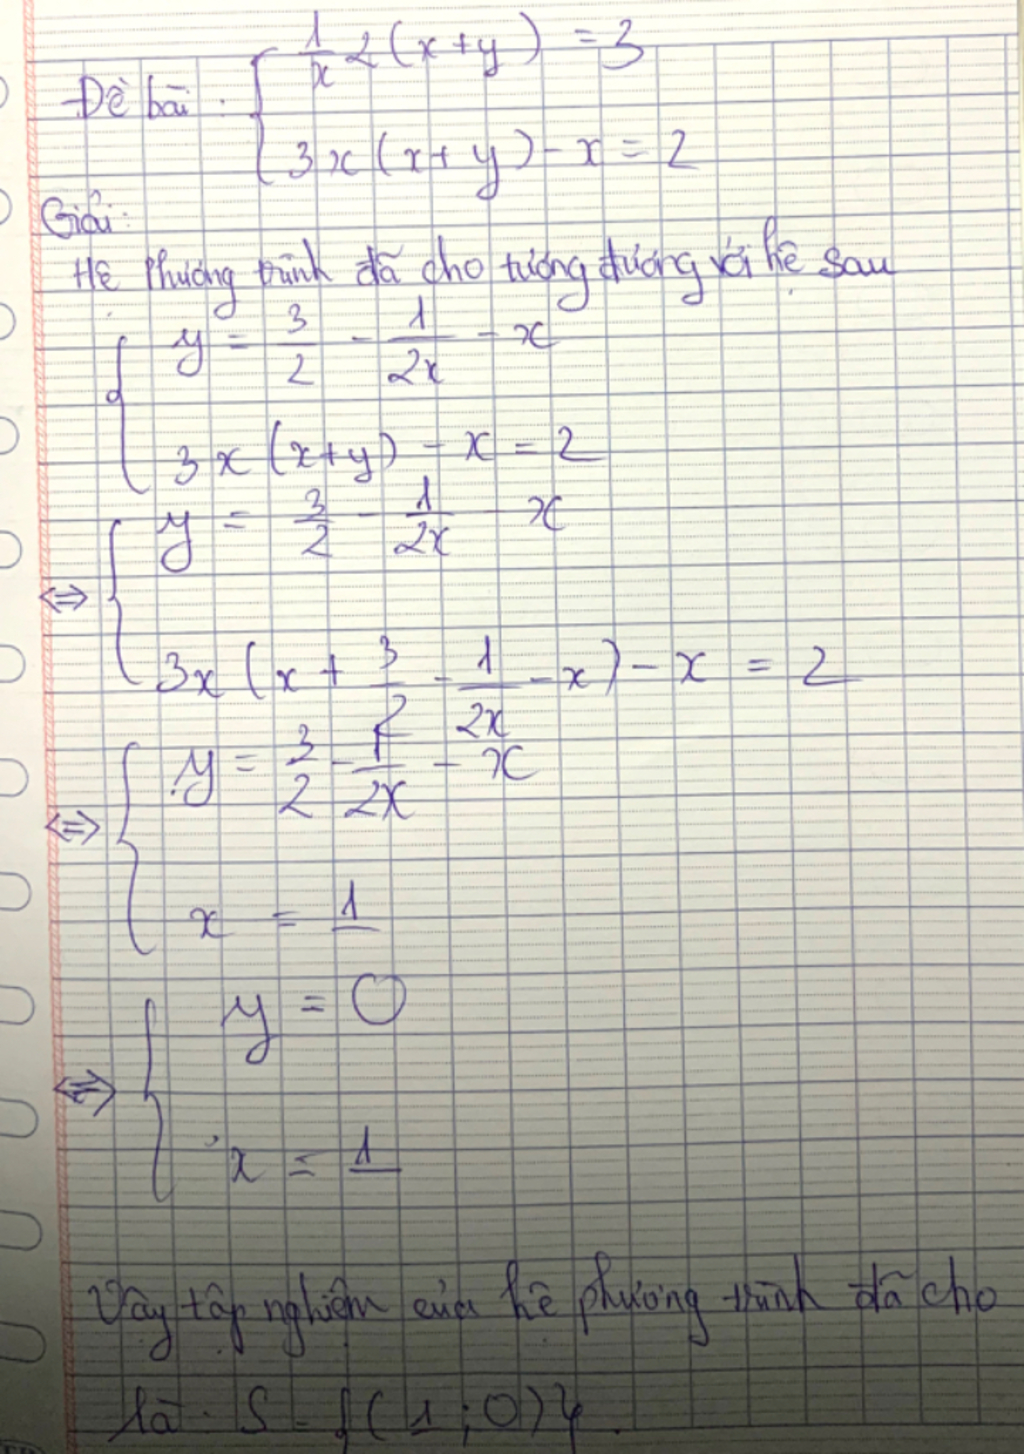 Đề bài : { 1/x 2(x+y) = 3
3x(x+y) - x = 2
Giải:
Hệ phương trình đã cho tương đương với hệ sau
{ y = 3/2 - 1/2x - x
3x(x+y) - x = 2
⇔ { y = 3/2 - 1/2x - x
3x(x + 3/2 - 1/2x - x) - x = 2
⇔ { y = 3/2 - 1/2x - x
x = 1
⇔ { y = 0
x = 1
Vậy tập nghiệm của hệ phương trình đã cho
là : S = {(1;0)}.